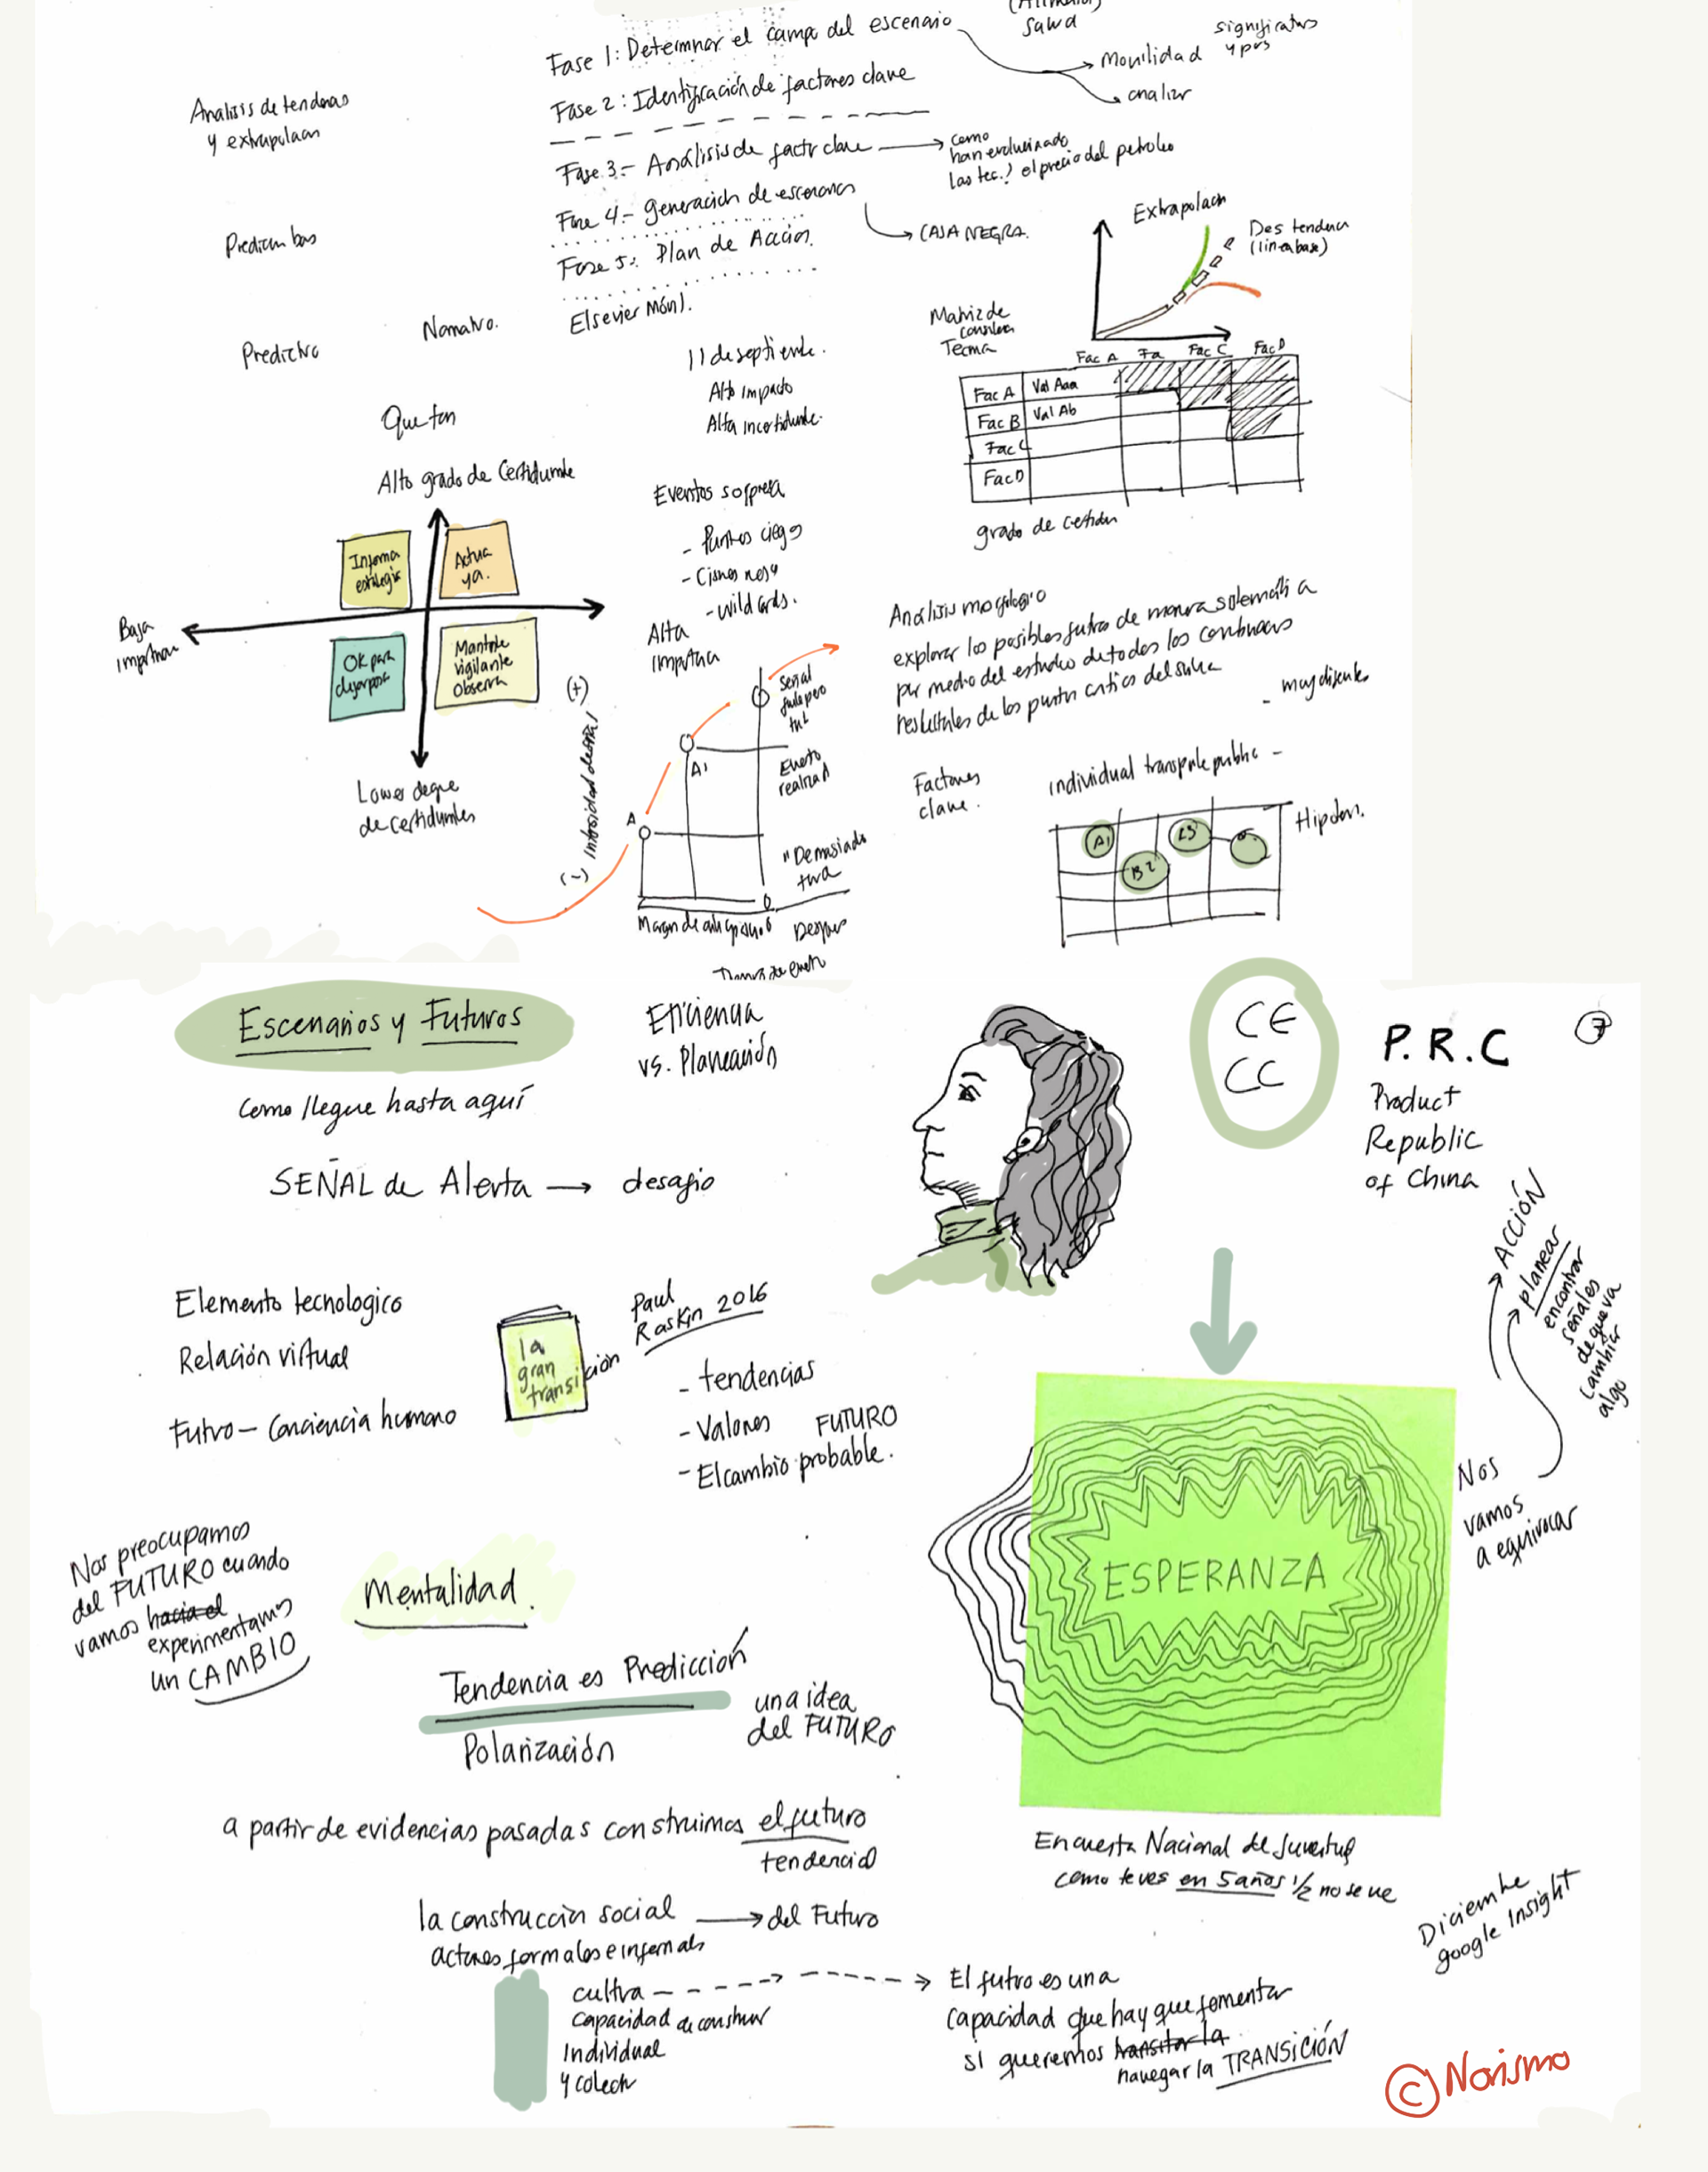 Salud
significativos
Fase 1: Determinar el campo del escenario
Movilidad
y pxs
analizar
Fase 2: Identificación de factores clave
Analisis de tendencias
y extrapolacion
Fase 3.- Análisis de factr clave
como
han evolucionado
las tec.? el precio del petroleo
Fase 4.- generación de escenarios
CAJA NEGRA.
Fase 5.: Plan de Acción.
Elsevier
Predictivo
Normativo.
Extrapolacn
Des tendencia
(linea base)
Matriz de
Fac A
Fa
Fac C
Fac D
Fac A
Val Aaa
Fac B
Val Ab
Fac C
Fac D
grado de certidum
11 de septiembre.
Alto impacto
Alta incertidumbre.
Eventos sorpresa
- Puntos ciegos
- Cisnes negr
- wild cards.
Que tan
Alto grado de Certidumbre
Informa
estrategic
Actua
ya.
Baja
importancia
Alta
importancia
OK para
Mantente
vigilante
Observa
Lower degre
de certidumbres
(+)
Intensidad de señal
(-)
A
A1
Señal
Evento
realidad
"Demasiado
Despues
Análisis morfologio
explorar los posibles futuros de manera sistematica
por medio del estudio de todas las
resultales de los puntos criticos del
- muy dificiles
Factores
clave.
individual transporte public -
A1
B2
Escenarios y Futuros
Eficiencia
vs. Planeación
como llegue hasta aquí
SEÑAL de Alerta → desafio
CE
CC
P.R.C
7
Product
Republic
of China
Elemento tecnologico
Relación virtual
Futuro – Conciencia humano
la
gran
transición
Paul
Raskin 2016
- tendencias
- Valores
FUTURO
- El cambio probable.
ACCIÓN
planear
encontrar
señales
de que va
cambiar
algo
Nos
vamos
a equivocar
ESPERANZA
Nos preocupamos
del FUTURO cuando
vamos hacia el
experimentamos
un CAMBIO
Mentalidad.
Tendencia es Predicción
una idea
del FUTURO
Polarización
a partir de evidencias pasadas construimos el futuro
tendencial
Encuesta Nacional de Juventud
como te ves en 5 años 1/2 no se ve
Diciembre
google Insight
la construcción social → del Futuro
actores formales e informals
cultura
capacidad de construir
Individual
y colectiv
El futuro es una
capacidad que hay que fomentar
si queremos transitar la
navegar la TRANSICIÓN
© Norismo